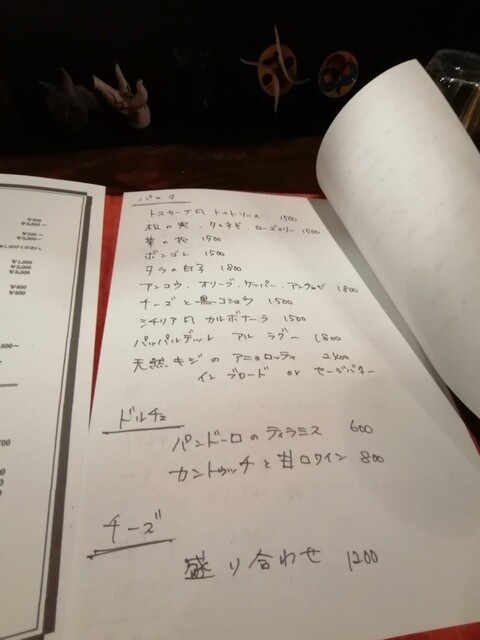 パスタ
トスカーナ風 トマトソース 1500
松の実・タマネギ・ローズマリー 1500
菜の花 1500
ボンゴレ 1500
タラの白子 1800
アンコウ・オリーブ・ケッパー・アンチョビ 1800
チーズと黒コショウ 1500
シチリア風 カルボナーラ 1500
パッパルデッレ アル ラグー 1800
天然キジの アニョロッティ 2400
イン ブロード or セージバター
ドルチェ
パンドーロのティラミス 600
カントゥッチと甘口ワイン 800
チーズ
盛り合わせ 1200